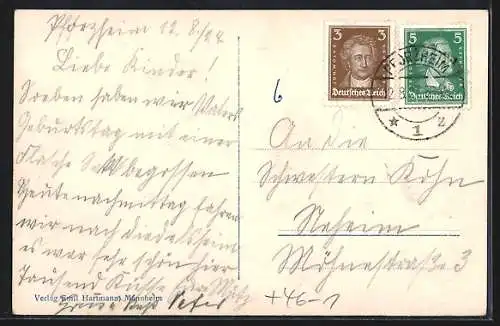 Pforzheim 12. 8/24
Liebe Kinder!
Soeben haben wir Vaters
Geburtstag mit einer
Flasche Sekt begossen
Heute nachmittag fahren
wir nach
es war sehr schön hier
Tausend Küsse
Verlag Emil Hartmann, Mannheim
6
3 3
Deutsches Reich
5 5
Deutsches Reich
PFORZHEIM
* 1 z
An die
Schwestern Kohn
Neheim
Möhnestraße 3
+46-1